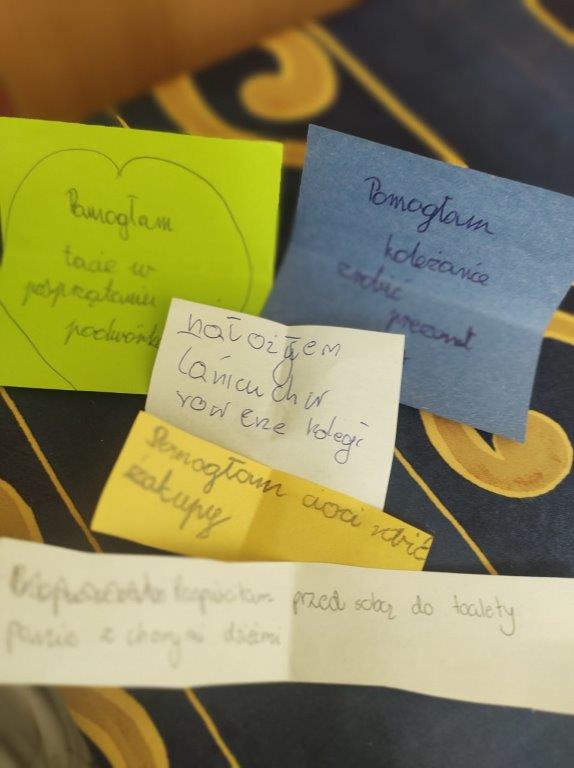 Pomogłam
tacie w
posprzątaniu
podwórka
Pomogłam
koleżance
zrobić
prezent
nałożyłem
łańcuch w
rowerze kolegi
Pomogłam cioci robić
zakupy
przed sobą do toalety
panie z chorymi dziećmi